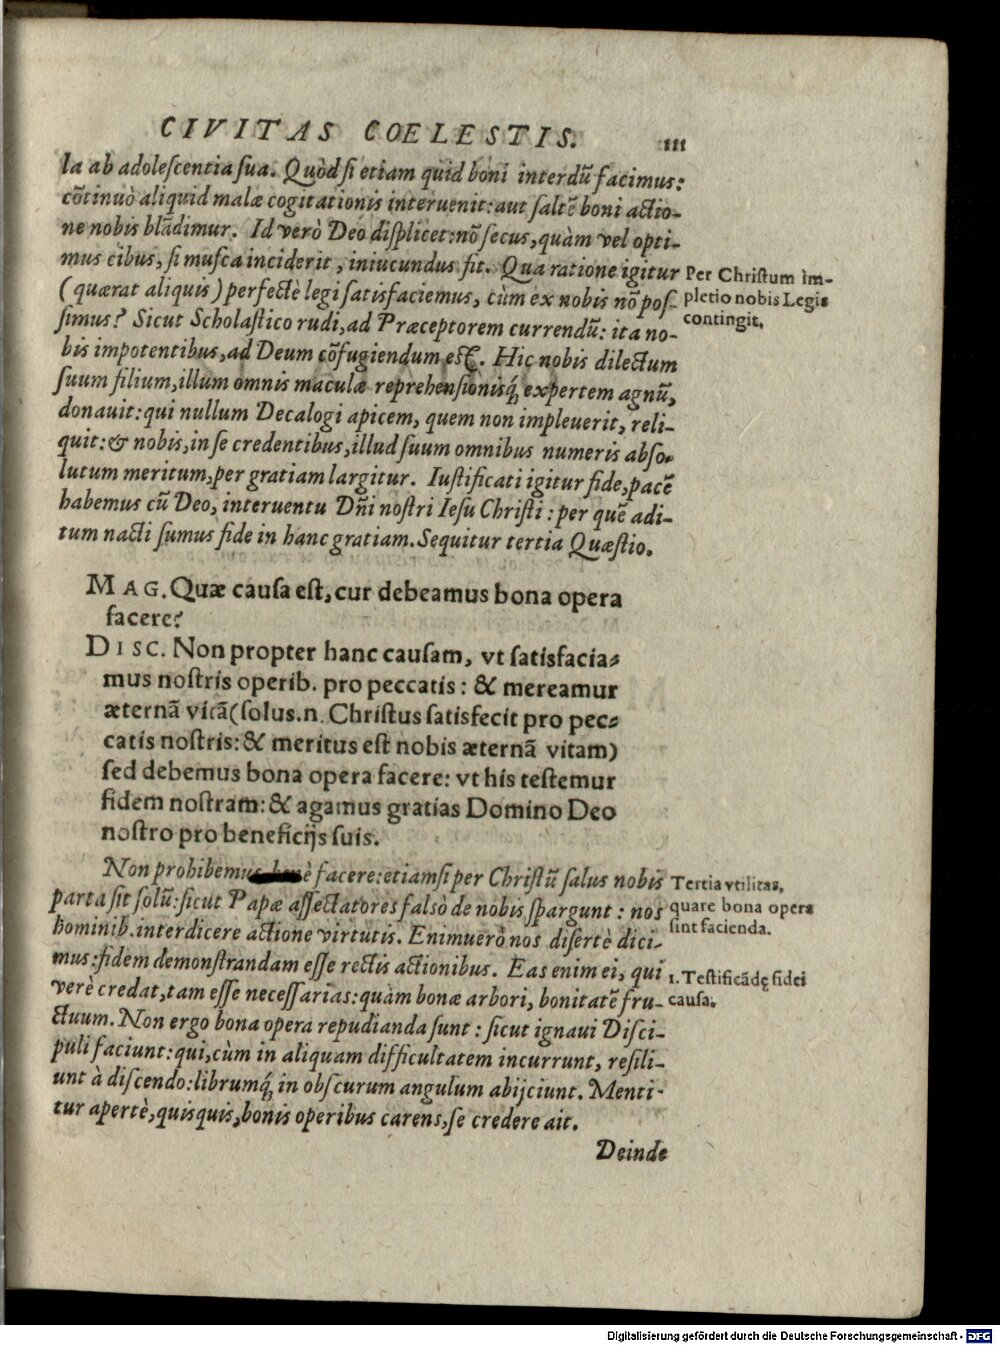 CIVITAS COELESTIS. 111
la ab adoleſcentia ſua. Quòd ſi etiam quid boni interdū facimus:
cōtinuò aliquid malæ cogitationis interuenit: aut ſaltē boni actio-
ne nobis blādimur. Id verò Deo diſplicet: nō ſecus, quàm vel opti-
mus cibus, ſi muſca inciderit, iniucundus fit. Qua ratione igitur
(quærat aliquis) perfectè legi ſatisfaciemus, cùm ex nobis nō poſ-
ſimus? Sicut Scholaſtico rudi, ad Præceptorem currendū: ita no-
bis impotentibus, ad Deum cōfugiendum eſt. Hic nobis dilectum
ſuum filium, illum omnis maculæ reprehenſionisq́; expertem agnū,
donauit: qui nullum Decalogi apicem, quem non impleuerit, reli-
quit: & nobis, in ſe credentibus, illud ſuum omnibus numeris abſo-
lutum meritum, per gratiam largitur. Iuſtificati igitur fide, pacē
habemus cū Deo, interuentu Dn̄i noſtri Ieſu Chriſti: per quē adi-
tum nacti ſumus fide in hanc gratiam. Sequitur tertia Quæſtio.
Per Chriſtum im-
pletio nobis Legis
contingit.
MAG. Quæ cauſa eſt, cur debeamus bona opera
facere?
DISC. Non propter hanc cauſam, vt ſatisfacia-
mus noſtris operib. pro peccatis: & mereamur
æternā vitā (ſolus.n. Chriſtus ſatisfecit pro pec-
catis noſtris: & meritus eſt nobis æternā vitam)
ſed debemus bona opera facere: vt his teſtemur
fidem noſtram: & agamus gratias Domino Deo
noſtro pro beneficijs ſuis.
Non prohibemus benè facere: etiamſi per Chriſtū ſalus nobis
parta ſit ſolū: ſicut Papæ aſſectatores falsò de nobis ſpargunt: nos
hominib. interdicere actione virtutis. Enimuerò nos diſertè dici-
mus: fidem demonſtrandam eſſe rectis actionibus. Eas enim ei, qui
verè credat, tam eſſe neceſſarias: quàm bonæ arbori, bonitatē fru-
ctuum. Non ergo bona opera repudianda ſunt: ſicut ignaui Diſci-
puli faciunt: qui, cùm in aliquam difficultatem incurrunt, reſili-
unt à diſcendo: librumq́; in obſcurum angulum abijciunt. Menti-
tur apertè, quisquis, bonis operibus carens, ſe credere ait.
Tertia vtilitas,
quare bona opera
ſint facienda.
1. Teſtificādę fidei
cauſa.
Deinde
Digitalisierung gefördert durch die Deutsche Forschungsgemeinschaft - DFG